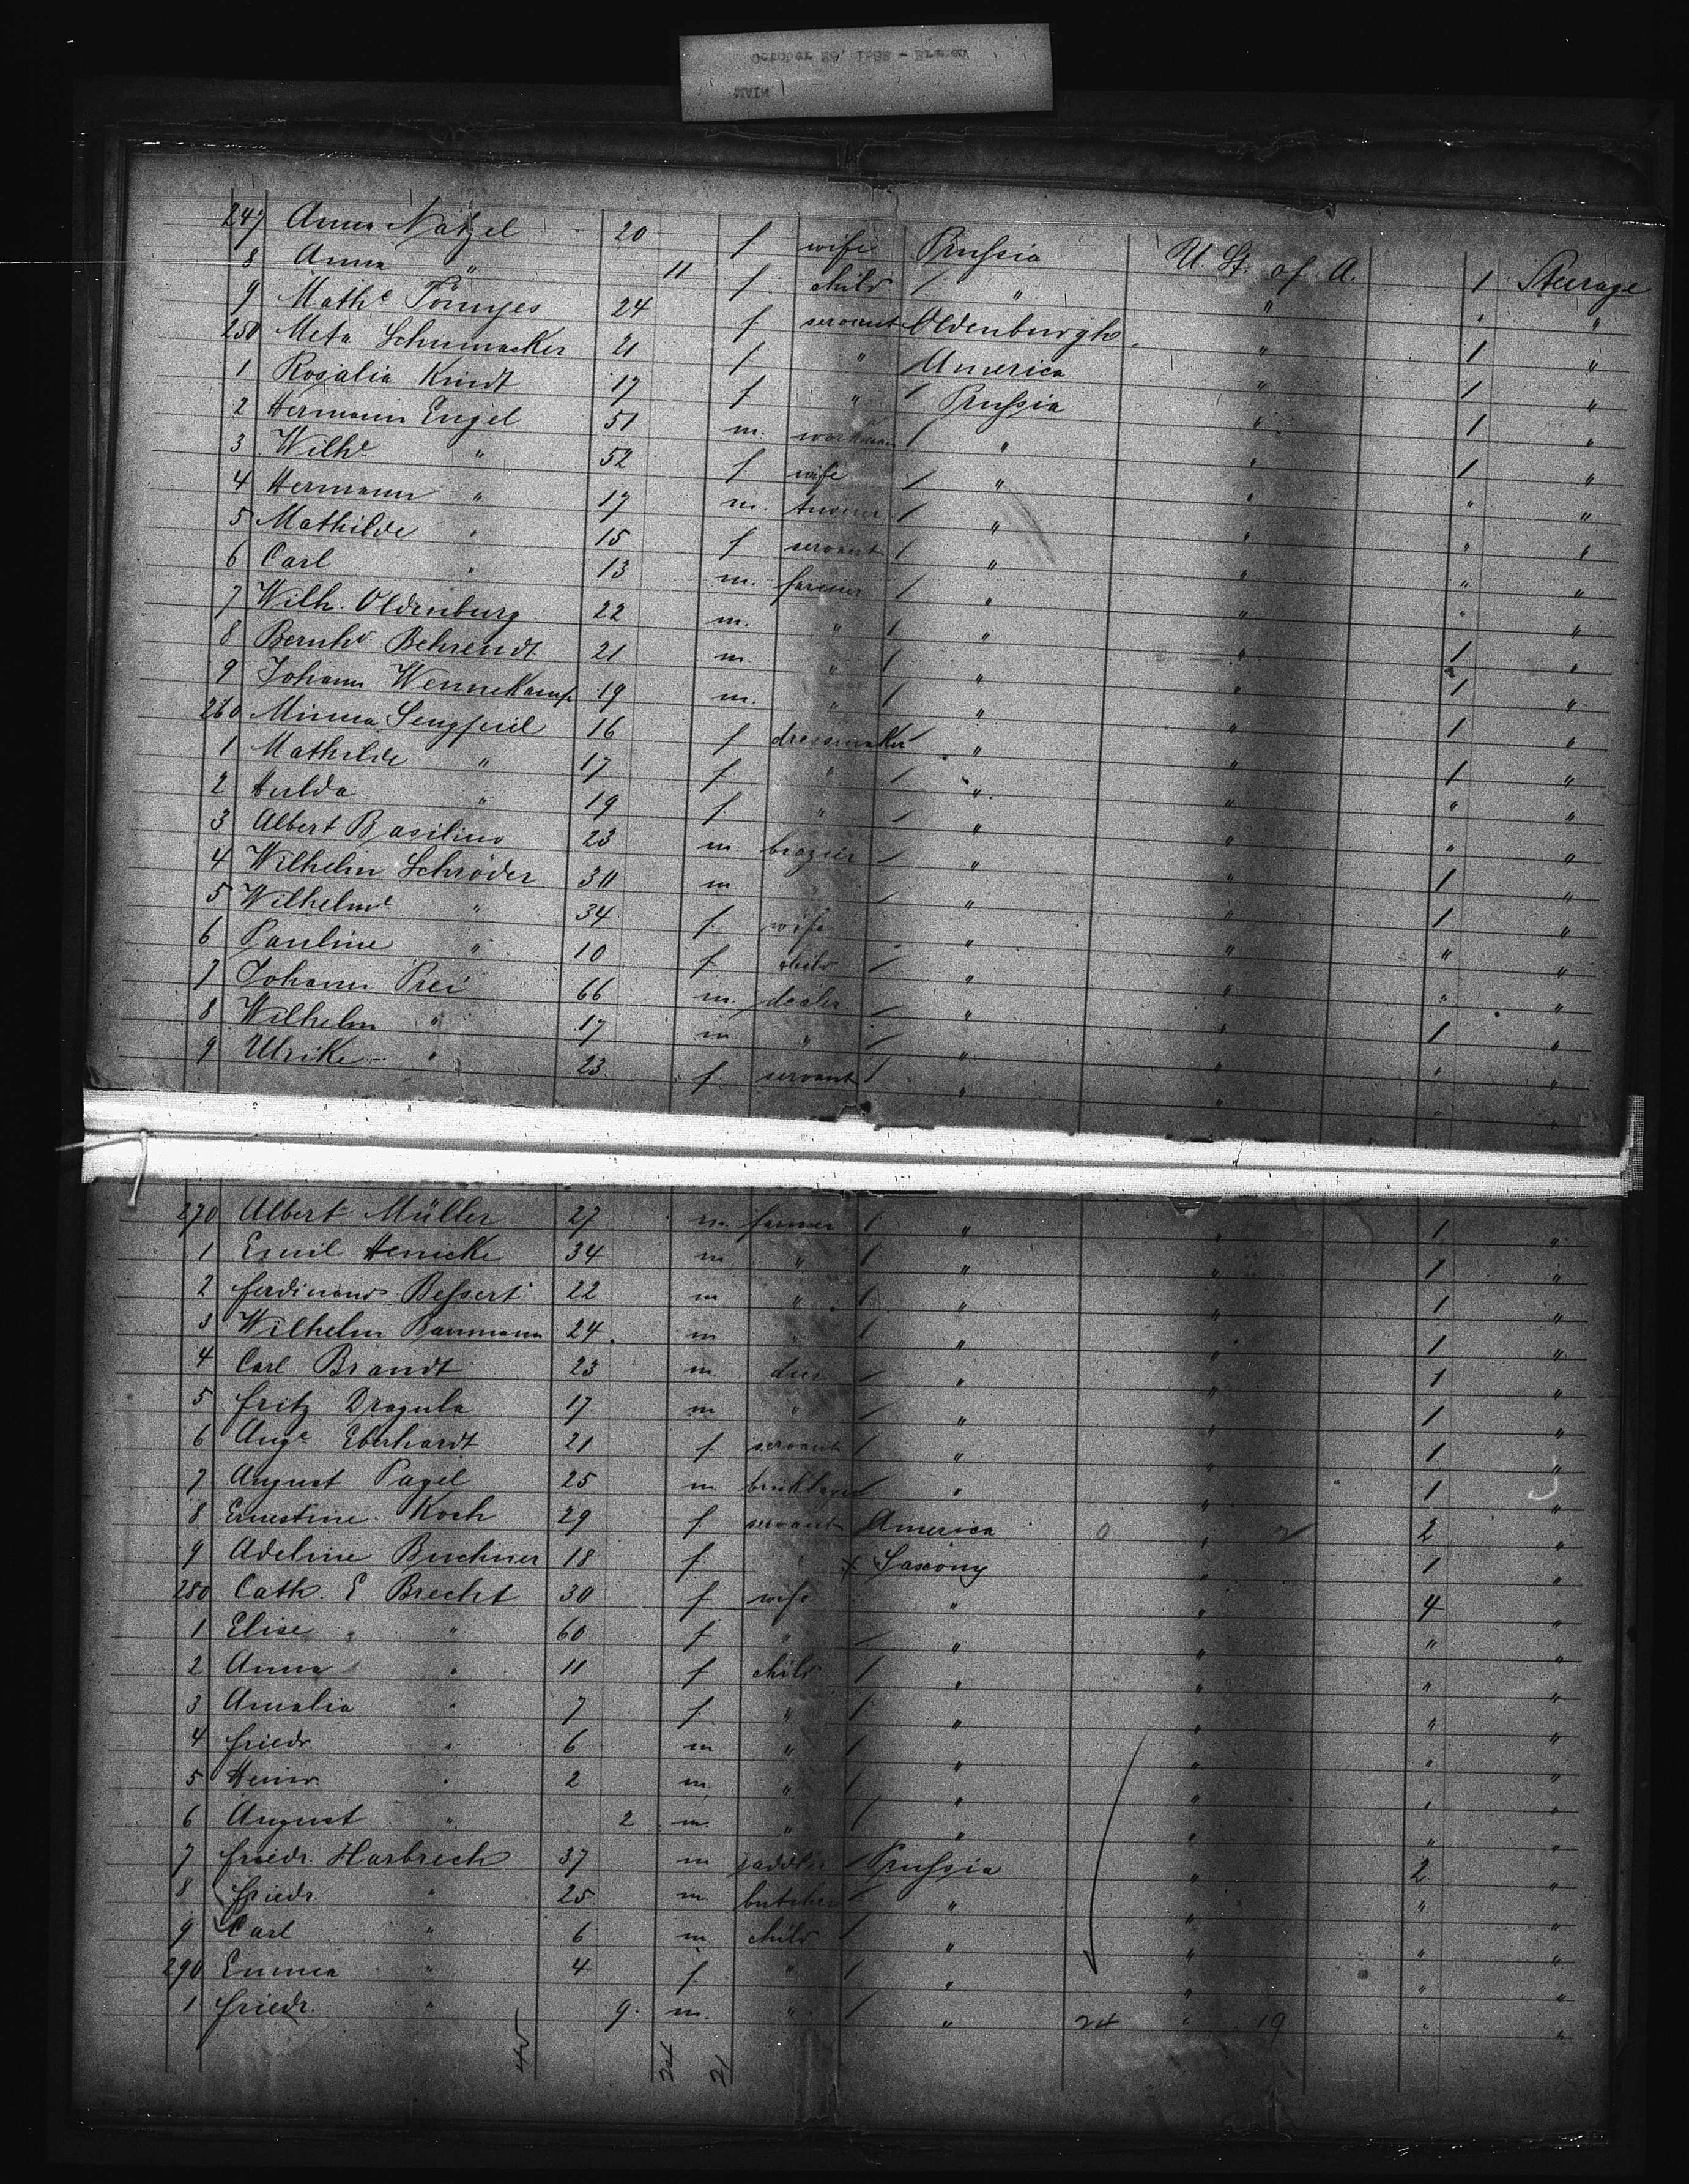 October 28, 1882 - Bremen
MAIN
247 Anna Natzel 20 f wife Prussia U. St. of A. 1 Steerage
8 Anna " 11 f. child / " " " "
9 Mathe Tönnjes 24 f. servant Oldenburgh " 1 "
250 Meta Schumacker 21 f " America " 1 "
1 Rosalia Kindt 17 f " / Prussia " 1 "
2 Hermann Engel 51 m. workman / " " 1 "
3 Wilhe " 52 f wife / " " " "
4 Hermann " 17 m. / " " " "
5 Mathilde " 15 f servant / " " " "
6 Carl " 13 m. farmer / " " " "
7 Wilh. Oldenburg 22 m. " / " " 1 "
8 Bernhd Behrendt 21 m " / " " 1 "
9 Johann Wennekamp 19 m. " / " " 1 "
260 Minna 16 f dressmaker / " " 1 "
1 Mathilde " 17 f " / " " " "
2 Hulda " 19 f. " / " " " "
3 Albert Basilius 23 m brazier / " " 1 "
4 Wilhelm Schröder 30 m / " " 1 "
5 Wilhelme " 34 f. wife " " " "
6 Pauline " 10 f. child / " " " "
7 Johann Prei 66 m. dealer / " " 1 "
8 Wilhelm " 17 m. " / " " " "
9 Ulrike " 23 f. servant / " " " "
270 Albert Müller 27 m. farmer / " " 1 "
1 Emil Henicke 34 m " / " " 1 "
2 Ferdinand Bessert 22 m " / " " 1 "
3 Wilhelm Baumann 24. m " / " " 1 "
4 Carl Brandt 23 m. / " " 1 "
5 Fritz Dragula 17 m " / " " 1 "
6 Auge Eberhardt 21 f. servant / " " 1 "
7 August Pagel 25 m bricklayer / " " 1 "
8 Ernestine Koch 29 f. servant America " 2 "
9 Adeline Buchner 18 f. " x Saxony " 1 "
280 Cath. E. Brecht 30 f wife " " 4 "
1 Elise " 60 f " / " " " "
2 Anna " 11 f child / " " " "
3 Amalia " 7 f. " / " " " "
4 Friedr. " 6 m " / " " " "
5 Heinr. " 2 m " / " " " "
6 August " 2 m. " / " " " "
7 Friedr. Harbrech 37 m saddler / Prussia " 2 "
8 Friedr. " 25 m butcher / " " " "
9 Carl " 6 m child / " " " "
290 Emma " 4 f. " / " " " "
1 Friedr. " 9. m. " / " 24 " 19 " "
24 21